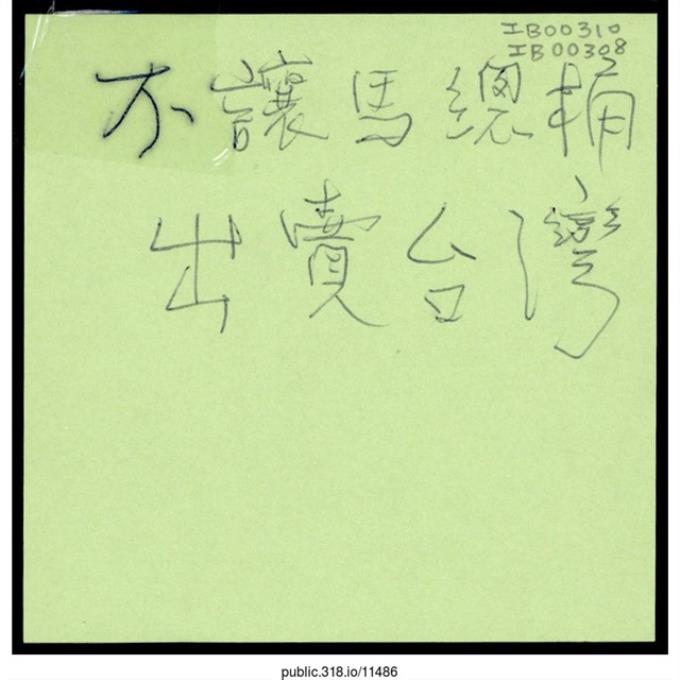 IB00310
IB00308
不讓馬總桶
出賣台灣
public.318.io/11486